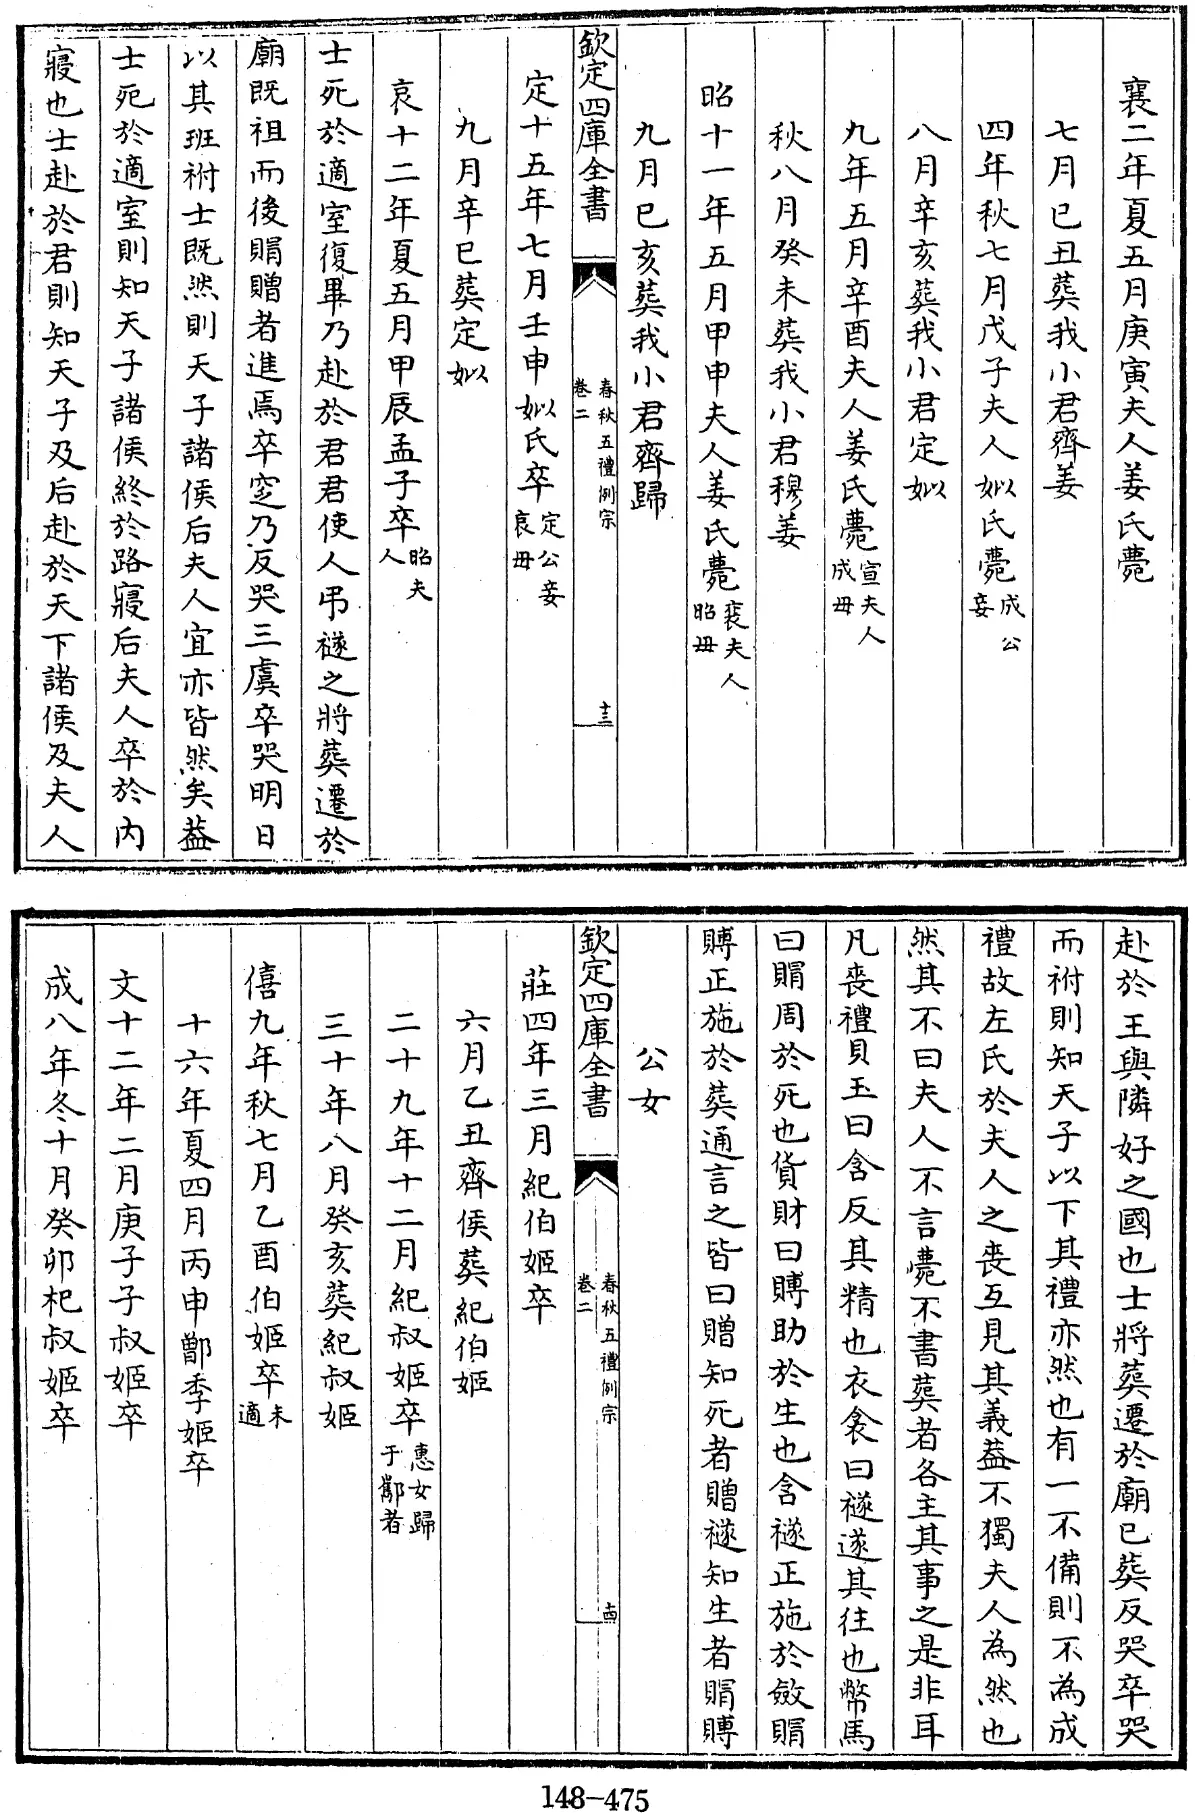 襄二年夏五月庚寅夫人姜氏薨
七月已丑葬我小君齊姜
四年秋七月戊子夫人姒氏薨成公妾
八月辛亥葬我小君定姒
九年五月辛酉夫人姜氏薨宣夫人成母
秋八月癸未葬我小君穆姜
昭十一年五月甲申夫人姜氏薨襄夫人昭母
九月已亥葬我小君齊歸
欽定四庫全書
春秋五禮例宗
卷二
十三
定十五年七月壬申姒氏卒定公妾哀母
九月辛巳葬定姒
哀十二年夏五月甲辰孟子卒昭夫人
士死於適室復畢乃赴於君君使人弔禭之將葬遷於
廟既祖而後賵贈者進焉卒窆乃反哭三虞卒哭明日
以其班祔士既然則天子諸侯后夫人宜亦皆然矣葢
士死於適室則知天子諸侯終於路寢后夫人卒於内
寢也士赴於君則知天子及后赴於天下諸侯及夫人
赴於王與隣好之國也士將葬遷於廟已葬反哭卒哭
而祔則知天子以下其禮亦然也有一不備則不為成
禮故左氏於夫人之喪互見其義葢不獨夫人為然也
然其不曰夫人不言薨不書葬者各主其事之是非耳
凡喪禮貝玉曰含反其精也衣衾曰禭遂其往也幣馬
曰賵周於死也貨財曰賻助於生也含禭正施於斂賵
賻正施於葬通言之皆曰贈知死者贈禭知生者賵賻
公女
欽定四庫全書
春秋五禮例宗
卷二
十四
莊四年三月紀伯姬卒
六月乙丑齊侯葬紀伯姬
二十九年十二月紀叔姬卒惠女歸于酅者
三十年八月癸亥葬紀叔姬
僖九年秋七月乙酉伯姬卒未適
十六年夏四月丙申鄫季姬卒
文十二年二月庚子子叔姬卒
成八年冬十月癸卯杞叔姬卒
148-475